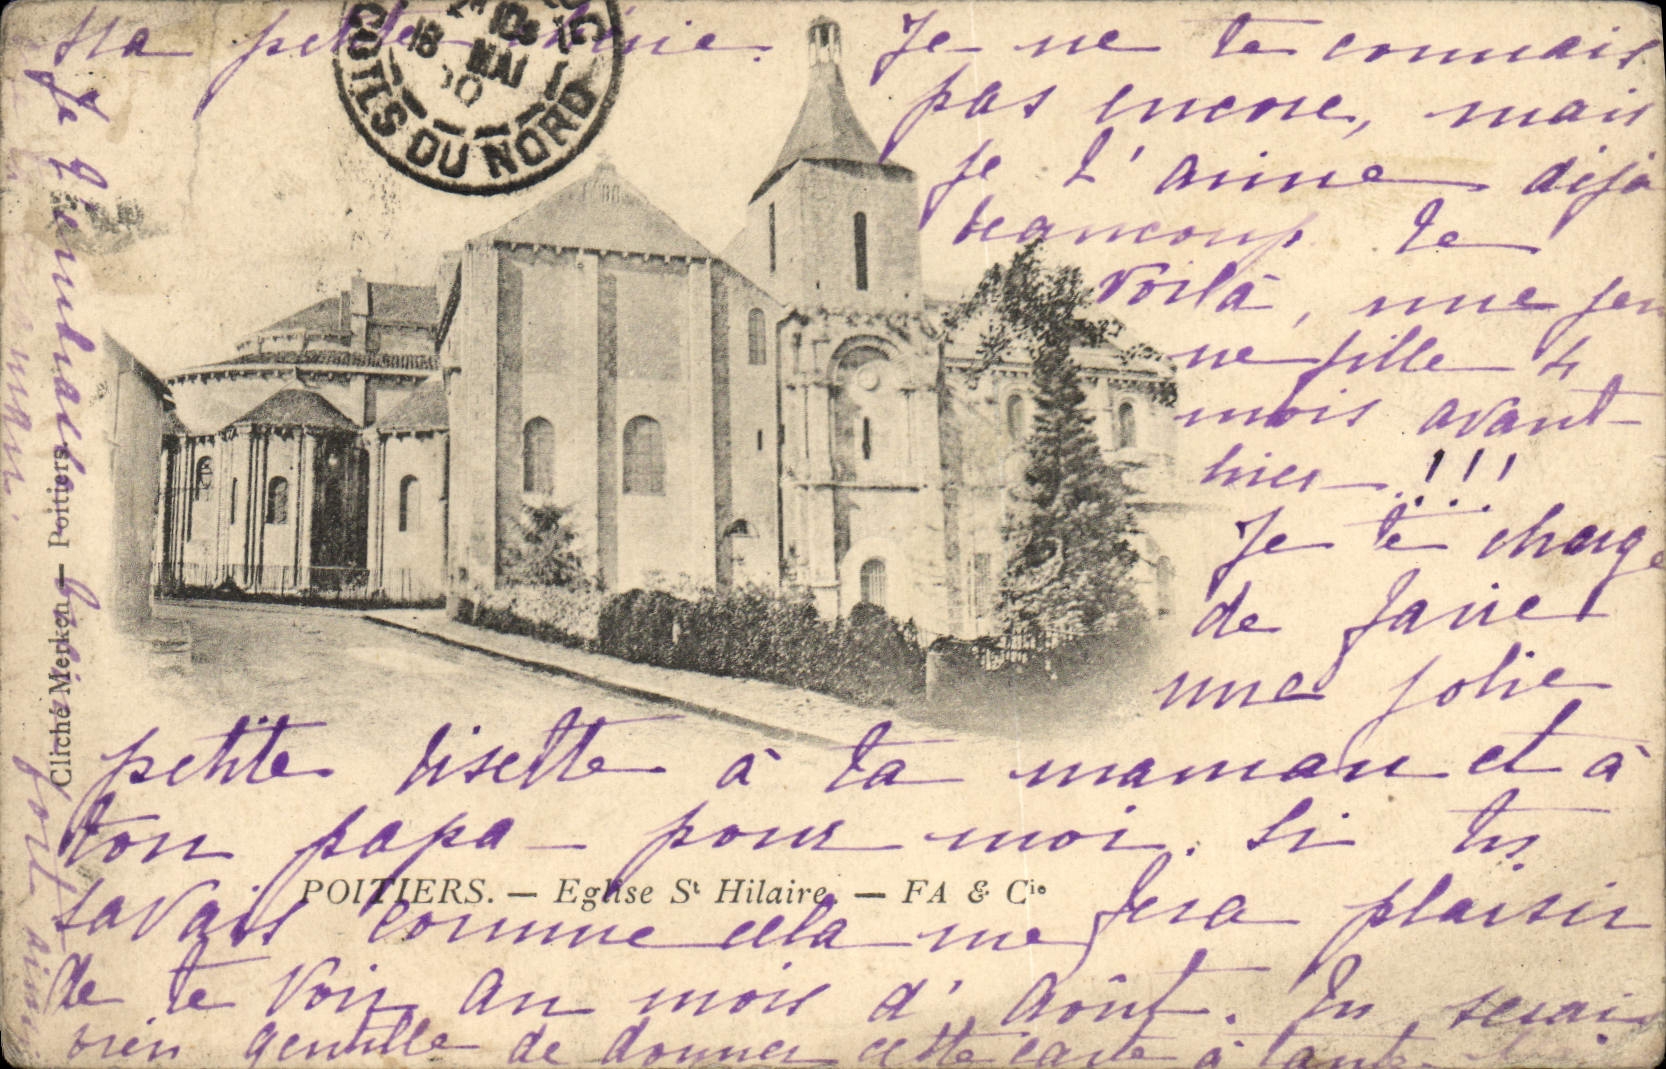 Ma petite chérie. Je ne te connais
pas encore, mais
je t'aime déjà
beaucoup te
voilà, une jeu
ne fille 4
mois avant-
hier . ! ! !
Je te charge
de faire
une jolie
petite risette à ta maman et à
ton papa - pour moi. Si tu
savais comme cela me fera plaisir
de te voir au mois d'Août. Tu serais
bien gentille de donner cette carte à tante
Je t'embrasse
fort
POITIERS. — Eglise St Hilaire. — FA & Cie
Cliché Merken — Poitiers.
18 MAI
DU NORD